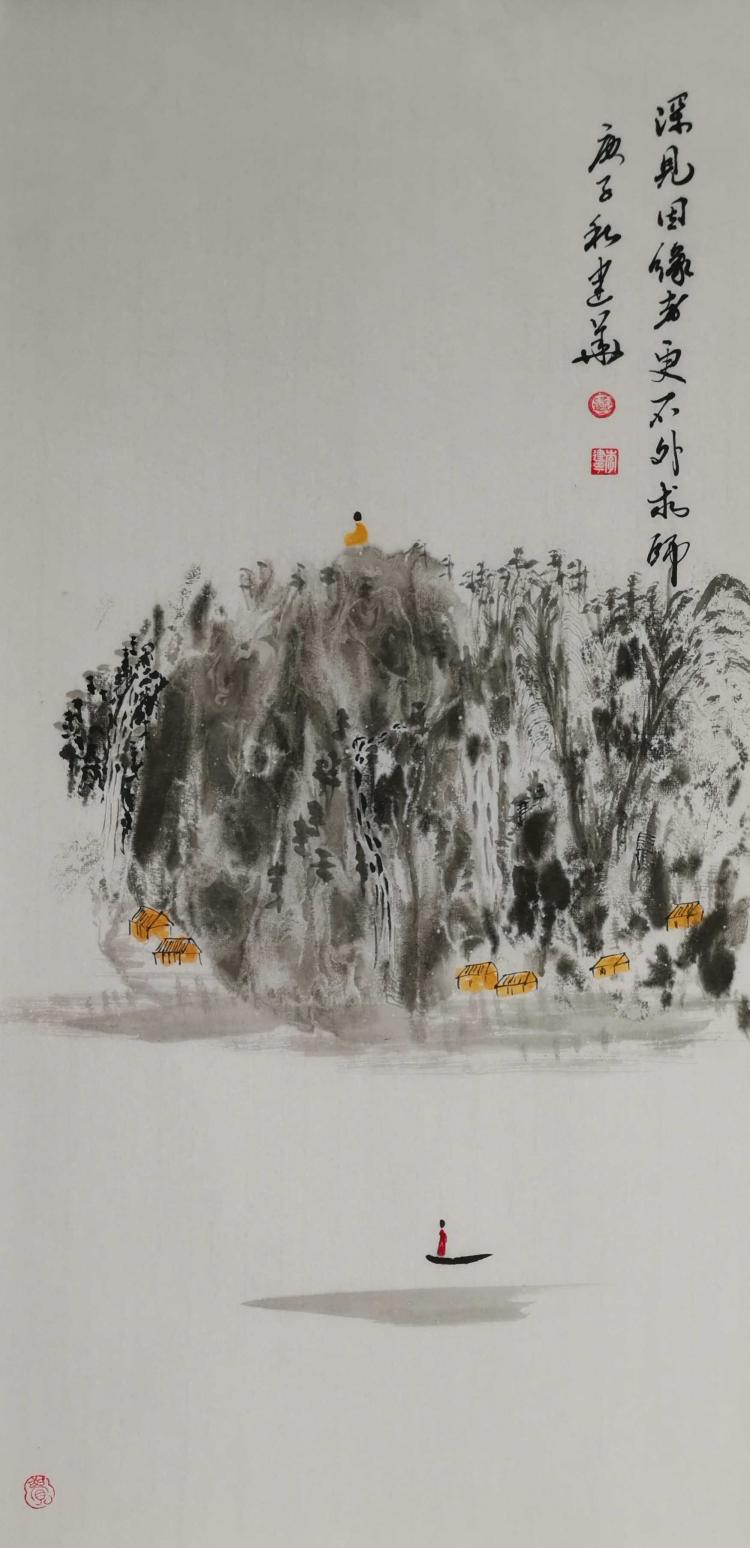 深见因缘者更不外求师
庚子秋建华